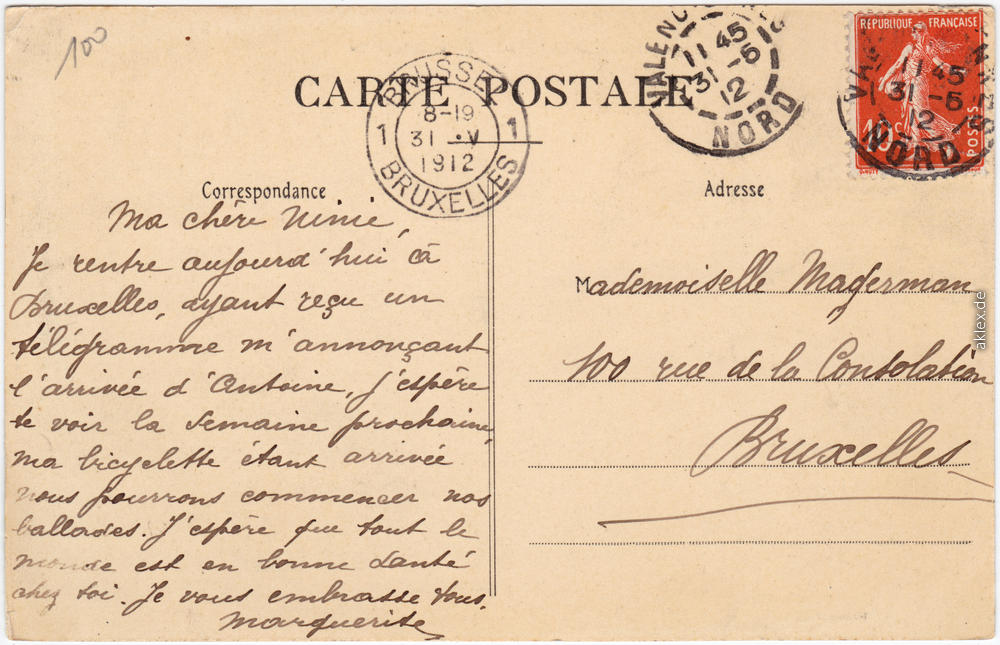 100
CARTE POSTALE
BRUSSEL
8-19
1 31 V 1
1912
BRUXELLES
11 45
31 -5
12
NORD
RÉPUBLIQUE FRANÇAISE
10c
POSTES
11 45
31 -5
12
NORD
Correspondance
Ma chère Ninie,
Je rentre aujourd'hui à
Bruxelles, ayant reçu un
télégramme m'annonçant
l'arrivée d'Antoine, j'espère
te voir la semaine prochaine
ma bicyclette étant arrivée
nous pourrons commencer nos
ballades. J'espère que tout le
monde est en bonne santé
chez toi. Je vous embrasse tous.
Marguerite
Adresse
Mademoiselle Magerman
100 rue de la Consolation
Bruxelles
aklex.de